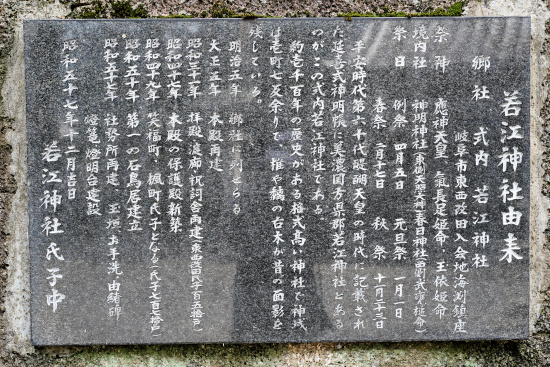 若江神社由来
郷社 式内 若江神社
岐阜市東西改田入会地海渕鎮座
祭神 應神天皇・氣長足姫命・玉依姫命
境内社 神明神社 春日神社
祭日 例祭 四月五日 元旦祭 一月一日
春祭 二月十七日 秋祭 十月二十三日
平安時代第六十代醍醐天皇の時代に記載され
た延喜式神明帳に美濃国方県郡若江神社とある
のがこの式内若江神社である。
約壱千百年の歴史がある格式高い神社で神域
は壱町七反余りで、椎や橘の古木が昔の面影を
残している。
明治五年 郷社に列せらる
大正五年 本殿再建
昭和三十年 拝殿渡廊祝詞舎再建
昭和四十六年 本殿の保護殿新築
昭和四十九年 笑福町、楓町氏子となる(氏子七百七拾戸)
昭和五十年 第一の石鳥居建立
昭和五十七年 社務所再建、玉垣お手洗、由緒碑
燈篭燈明台建設
昭和五十七年十二月吉日
若江神社氏子中